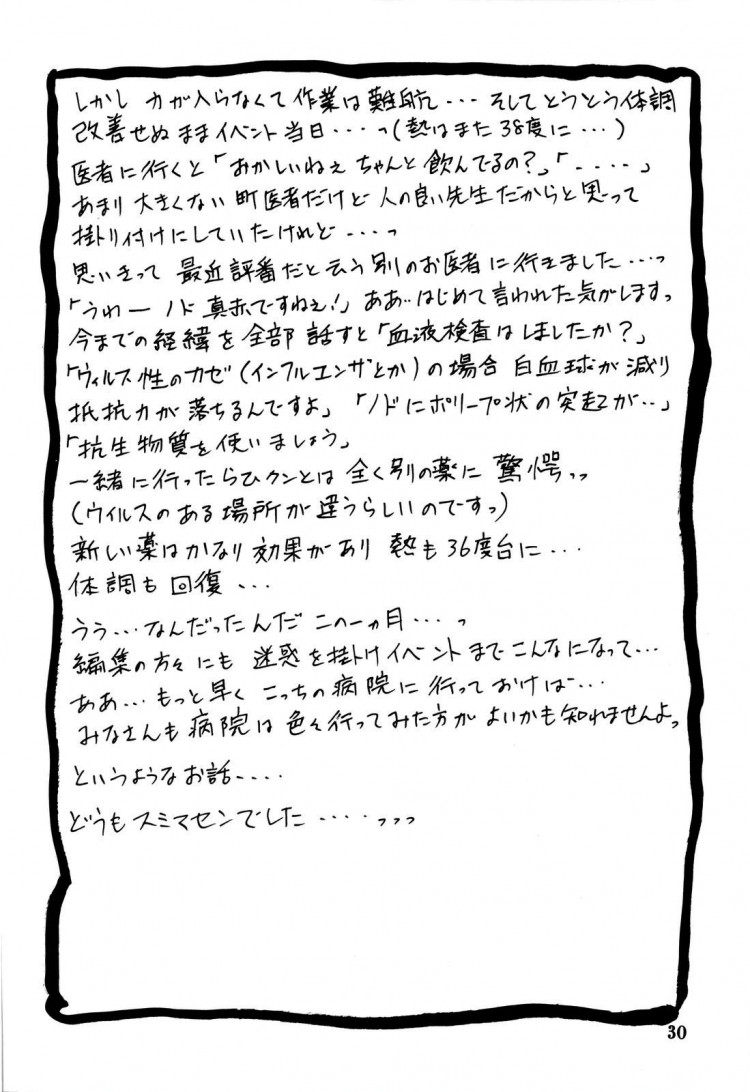 しかし 力が入らなくて作業は難航・・・そしてとうとう体調
改善せぬままイベント当日・・・っ(熱はまた38度に・・・)
医者に行くと「おかしいねぇ ちゃんと飲んでるの?」「・・・・」
あまり大きくない町医者だけど 人の良い先生だからと思って
掛トリ付けにしていたけれど・・・っ
思いきって 最近評番だと云う別のお医者に行きました・・・っ
「うわー ノド真赤ですねぇ!」ああ・・はじめて言われた気がしますっ
今までの経緯を全部話すと「血液検査はしましたか?」
「ウィルス性のカゼ(インフルエンザとか)の場合 白血球が減り
抵抗力が落ちるんですよ」「ノドにポリープ状の突起が・・」
「抗生物質を使いましょう」
一緒に行ったらひクンとは 全く別の薬に 驚愕っっ
(ウイルスのある場所が違うらしいのですっ)
新しい薬はかなり効果があり 熱も36度台に・・・
体調も回復・・・
うぅ・・・なんだったんだ この一ヵ月・・・っ
編集の方々にも 迷惑を掛けイベントまでこんなになって・・・
ああ・・・もっと早く こっちの病院に行っておけば・・・
みなさんも病院は色々行ってみた方がよいかも知れませんよっ
というようなお話・・・・
どうもスミマセンでした・・・・っっっ
30